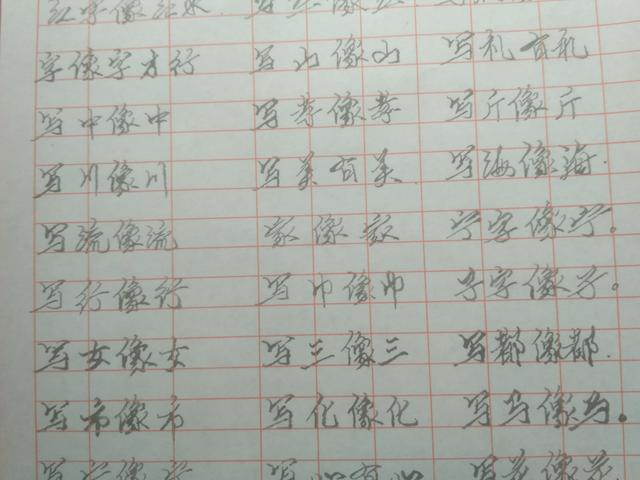 字像字才行 写山像山 写礼有礼
写中像中 写孝像孝 写斤像斤
写川像川 写美有美 写海像海.
写流像流 家像家 宁字像宁。
写行像行 写巾像巾 子字像子。
写女像女 写三像三 写都像都.
写市像市 写化像化 写马像马。